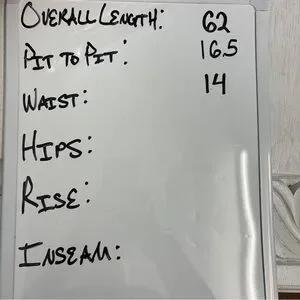 OVERALL LENGTH: 62
PIT TO PIT: 16.5
WAIST: 14
HIPS:
RISE:
INSEAM: